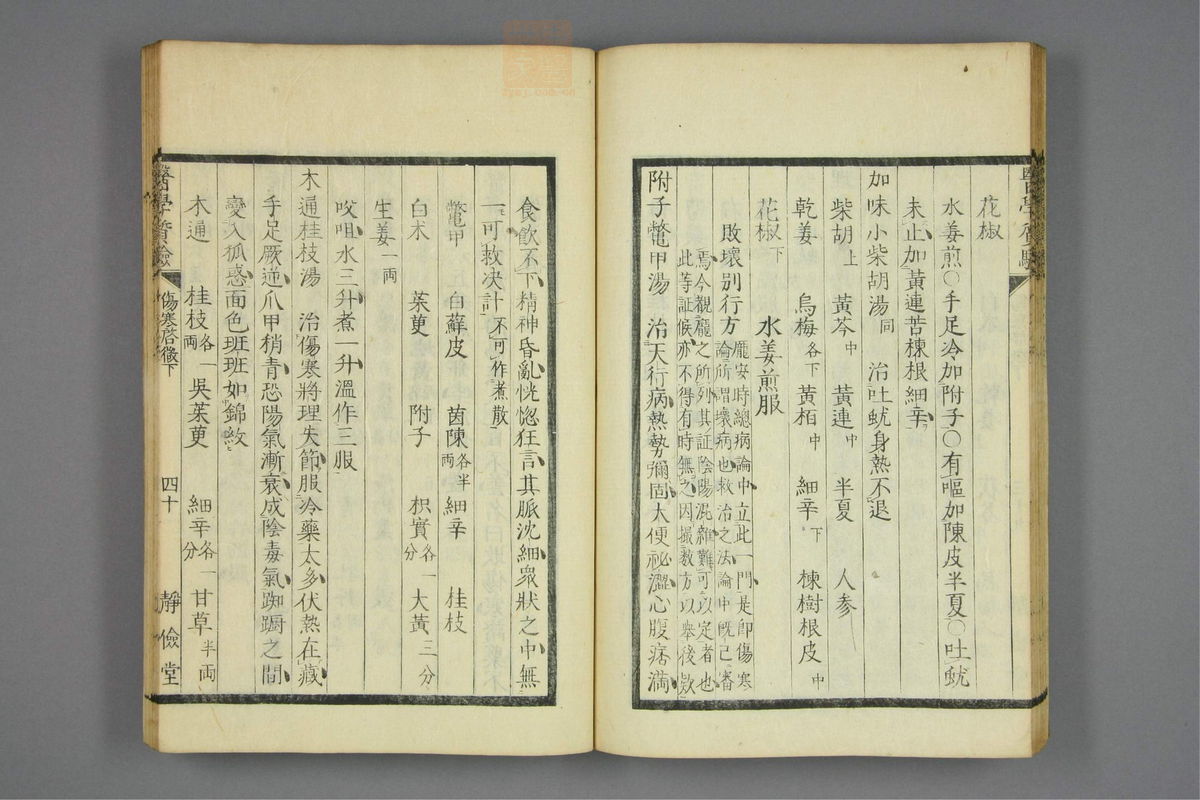 花椒
水姜煎〇手足冷加附子〇有嘔加陳皮半夏〇吐蚘
未止加黃連苦楝根細辛
加味小柴胡湯同 治吐蚘身熱不退
柴胡上 黃芩中 黃連中 半夏 人参
乾姜 烏梅各下 黃栢中 細辛下 楝樹根皮中
花椒下 水姜煎服
敗壞別行方 龐安時總病論中立此一門是即傷寒
論所謂壞病也救治之法論中既已審
焉今觀龐之所列其証陰陽混雜難可以定者也
此等証候亦不得有時無之因撮数方以舉後欵
附子鼈甲湯 治天行病熱勢彌固大便祕澀心腹痞满
食飲不下精神昏亂恍惚狂言其脈沈細衆狀之中無
一可救决計不可作煮散
鼈甲 白蘚皮 茵陳各半両 細辛 桂枝
白朮 茱萸 附子 枳實各一分 大黃三分
生姜一両
㕮咀水三升煮一升溫作三服
木通桂枝湯 治傷寒將理失節服冷藥太多伏熱在藏
手足厥逆爪甲稍青恐陽氣漸衰成陰毒氣踟蹰之間
變入狐惑面色斑斑如錦紋
木通 桂枝各一両 吳茱萸 細辛各一分 甘草半両
醫學質驗
醫學質驗 傷寒啓微下 四十 靜儉堂